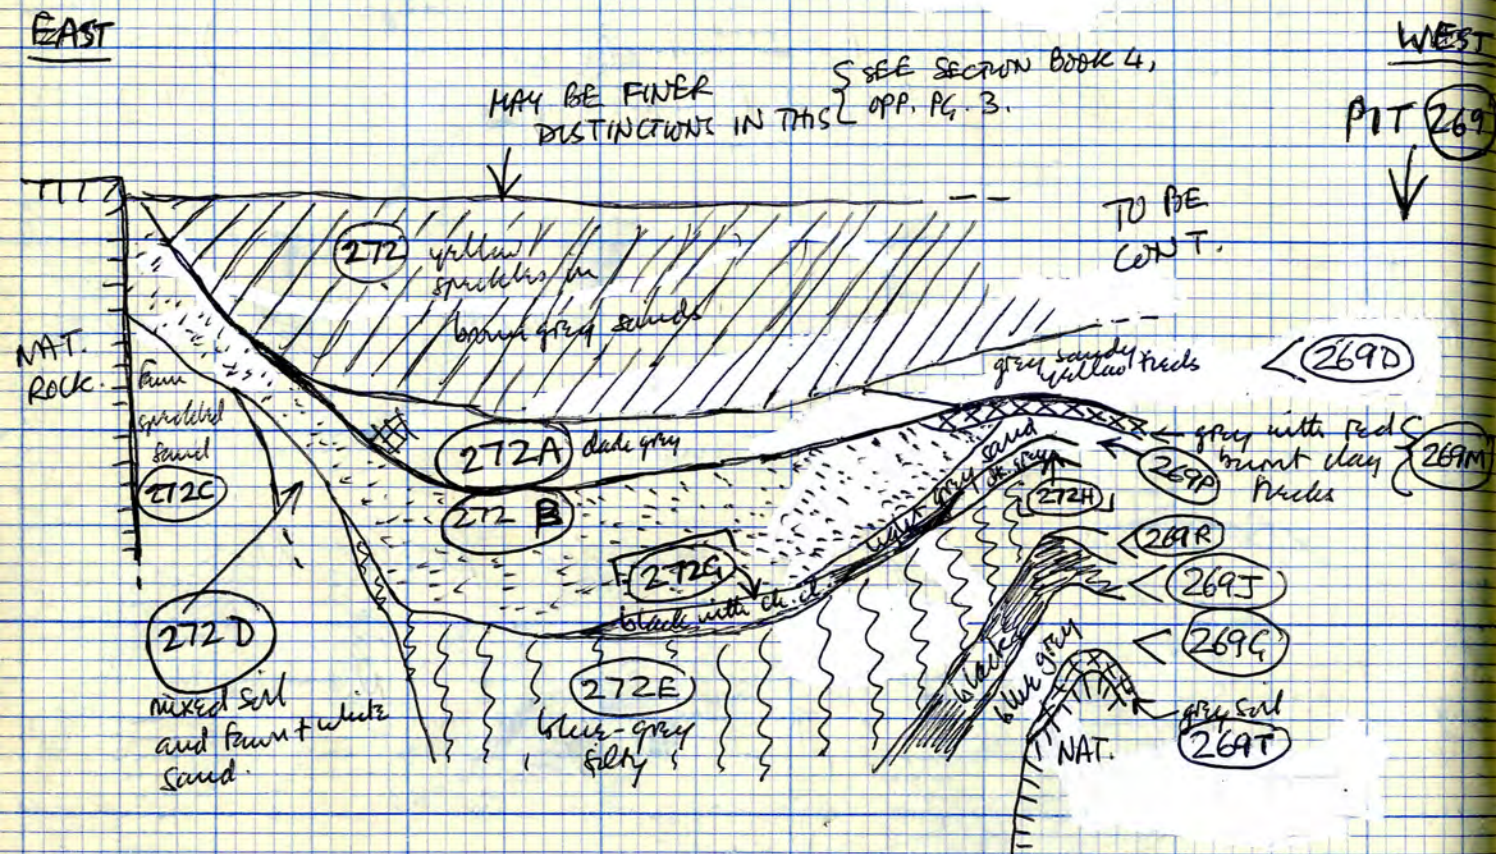 EAST
WEST
MAY BE FINER
DISTINCTIONS IN THIS
SEE SECTION BOOK 4,
OPP. PG. 3.
PIT 269
TO BE
CONT.
272 yellow
speckles in
brown grey sands
NAT.
ROCK.
fawn
speckled
sand
272C
grey sandy
yellow flecks
269D
272A dark grey
272 B
light grey sand
dk. grey
272H
grey with red
burnt clay
flecks
269M
269P
269R
272G
black with ch. cl.
269J
272D
mixed soil
and fawn + white
sand.
272E
blue-grey
silty
blacks
blue grey
269G
grey soil
269T
NAT.